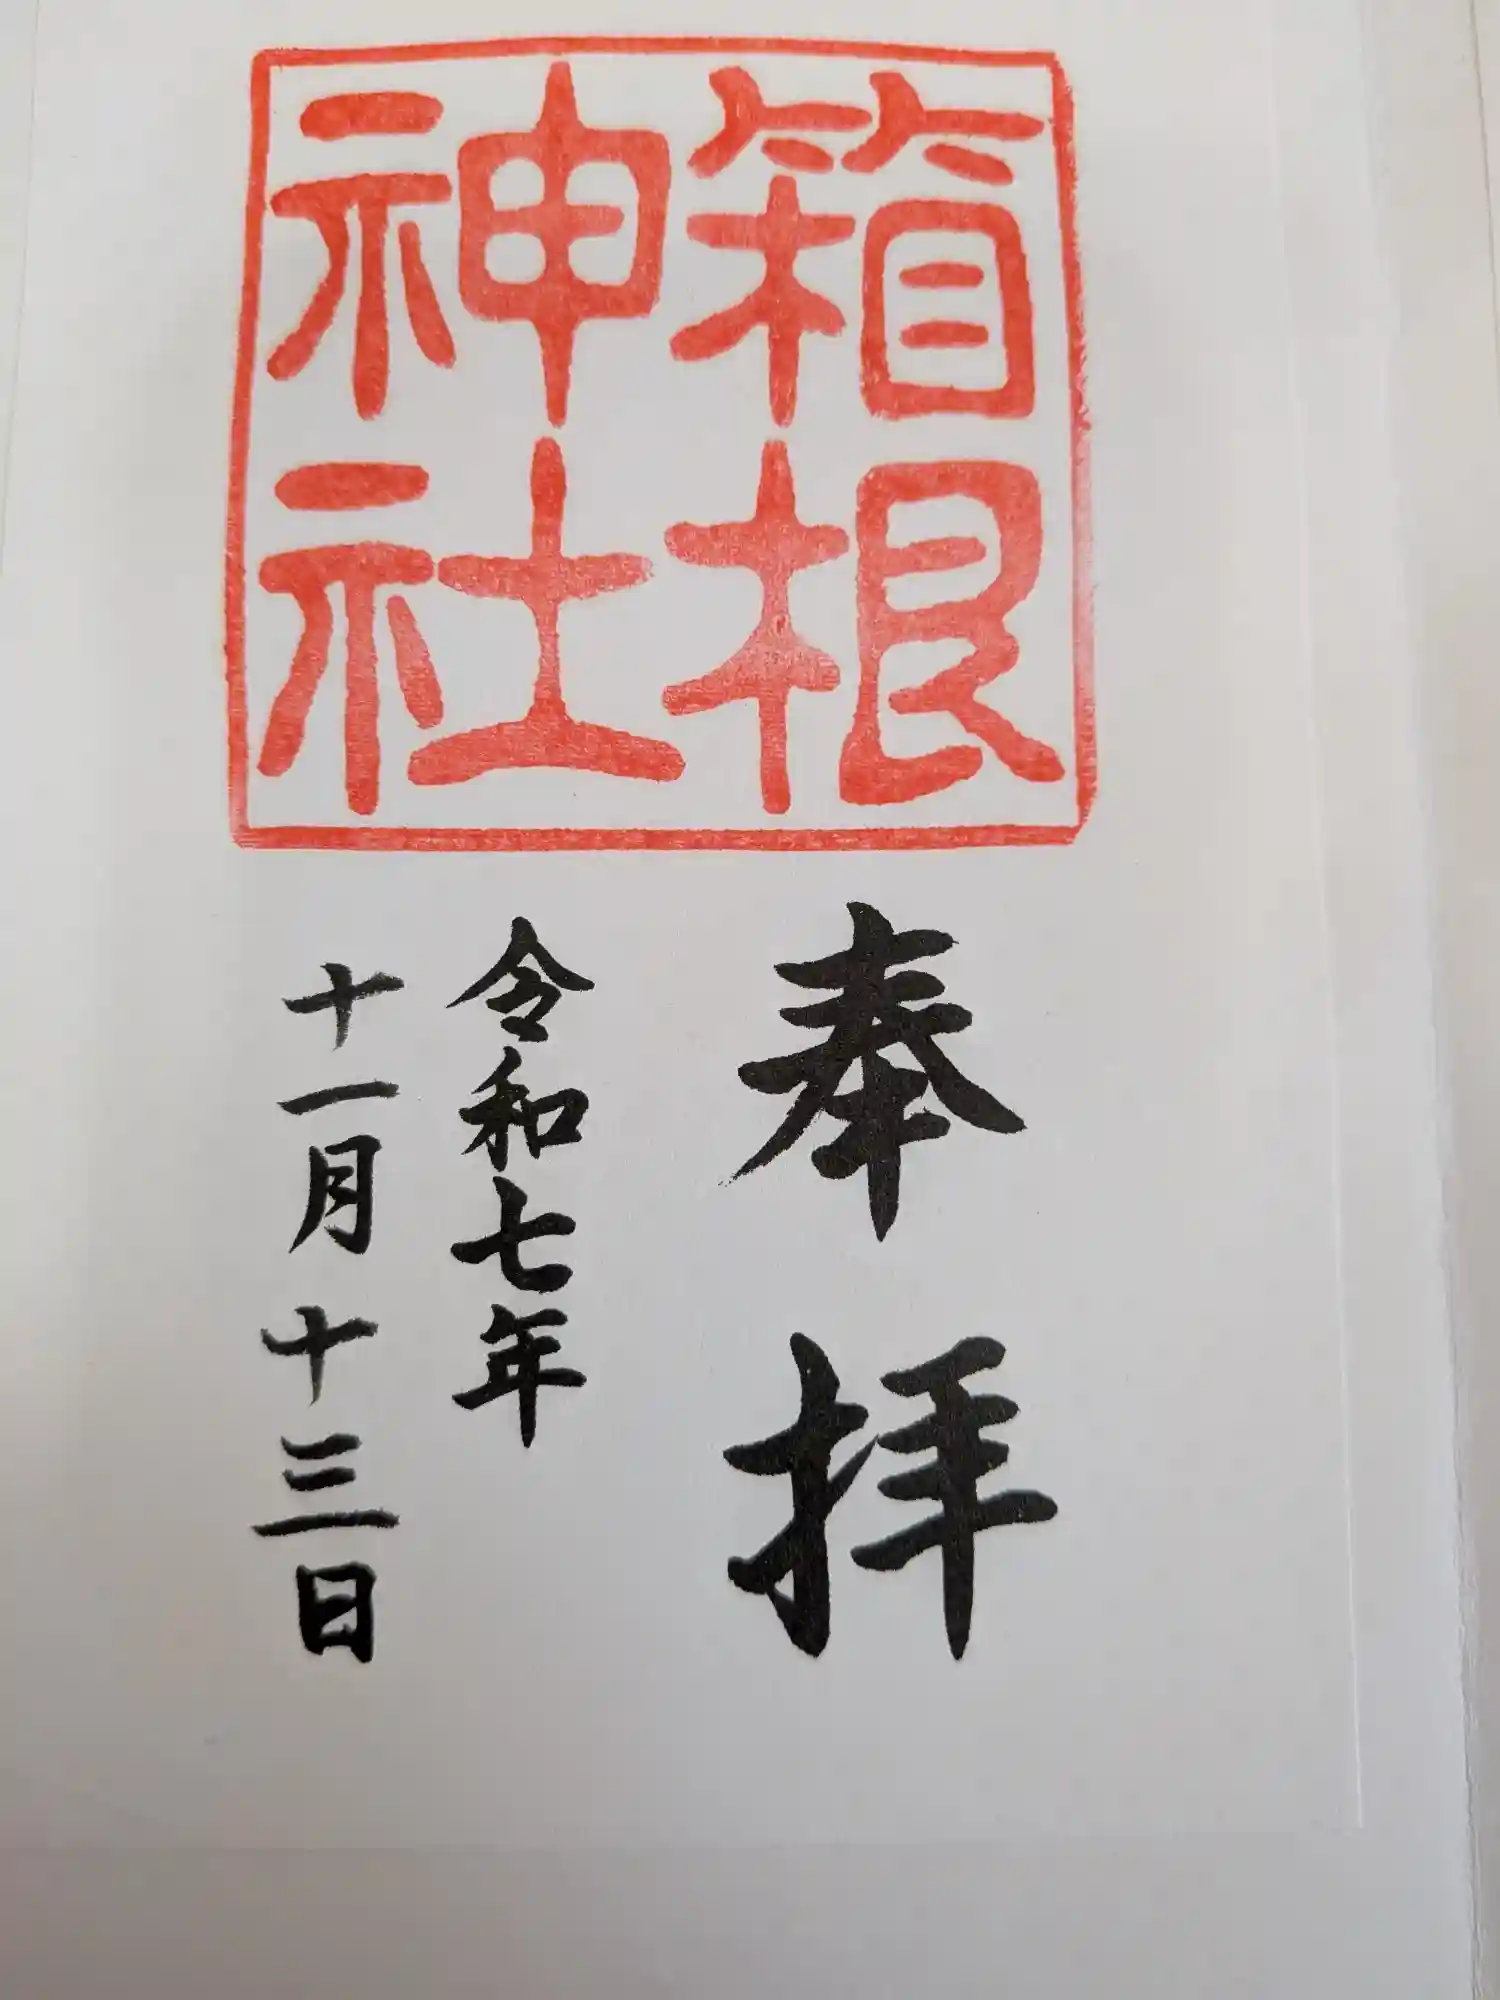 箱根
神社
奉拝
令和七年
十一月十三日